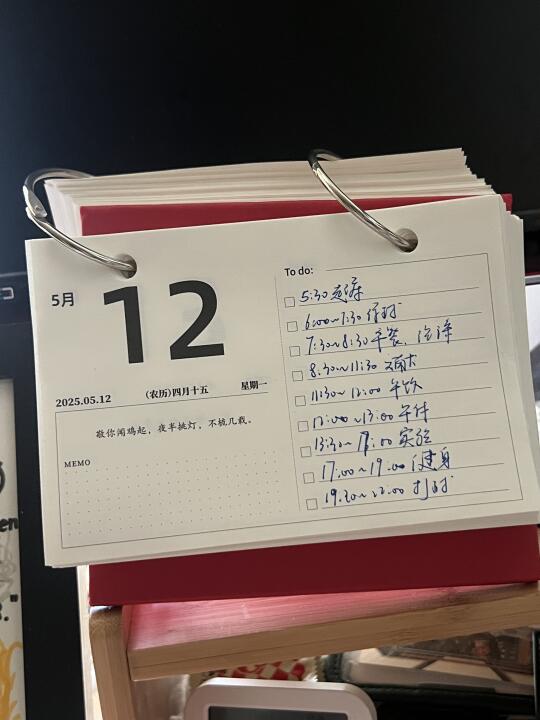 5月
12
2025.05.12 (农历)四月十五 星期一
敬你闻鸡起，夜半挑灯，不梳几载。
MEMO
To do:
5:30 起床
6:00~7:30
7:30~8:30 早餐、洗澡
8:30~11:30
11:30~12:00 午饭
12:00~13:00 午休
13:30~17:00 实验
17:00~19:00 健身
19:30~22:00